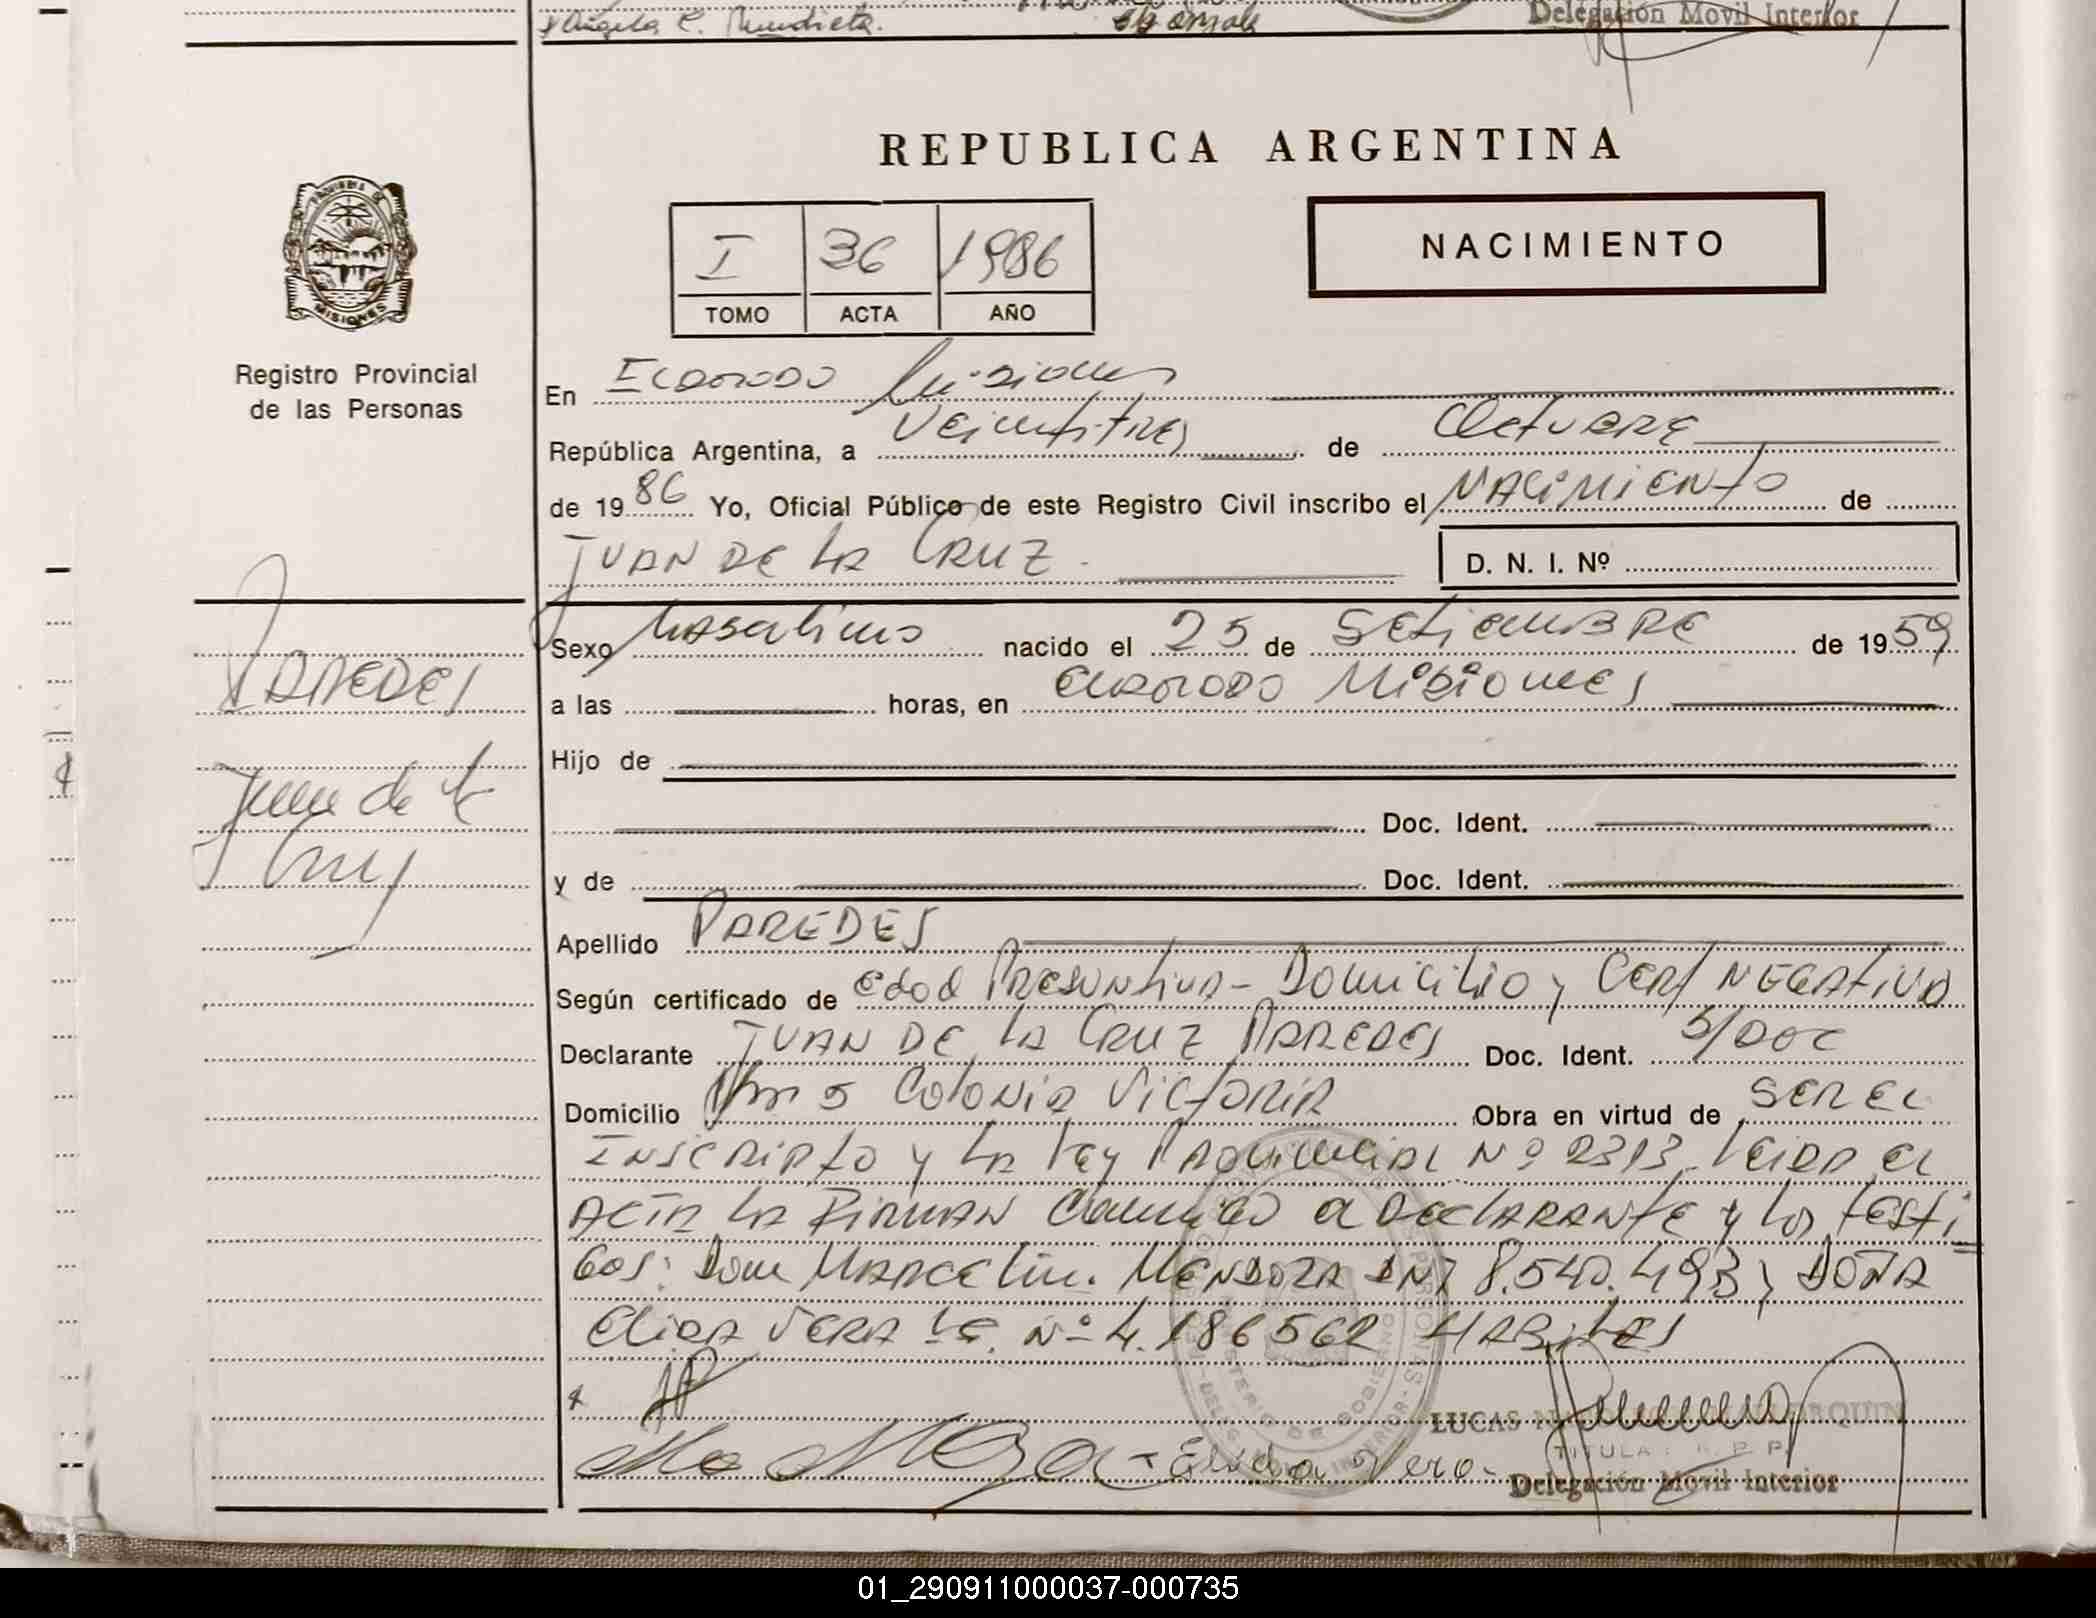 Angela C. Mendieta.
Delegación Movil Interior
REPUBLICA ARGENTINA
I 36 1986
NACIMIENTO
TOMO ACTA AÑO
MISIONES
Registro Provincial
de las Personas
En Eldorado Misiones
República Argentina, a Veintitres de Octubre
de 1986 Yo, Oficial Público de este Registro Civil inscribo el NACIMIENTO de
JUAN DE LA CRUZ D. N. I. Nº
Sexo Masculino nacido el 25 de SETIEMBRE de 1959
PAREDES
a las horas, en Eldorado Misiones
Hijo de
Juan de la
Cruz
Doc. Ident.
y de Doc. Ident.
Apellido PAREDES
Según certificado de Edad Presuntiva - Domicilio y Cert NEGATIVO
Declarante JUAN DE LA CRUZ PAREDES Doc. Ident. S/DOC
Domicilio Km 5 Colonia Victoria Obra en virtud de SER EL
INSCRIPTO y LA Ley PROVINCIAL Nº 2313. Leida el
ACTA LA FIRMAN Conmigo el DECLARANTE y los testi
gos: Don MARCELIN. MENDOZA DNI 8.540.493 y DOÑA
Elida VERA LC. Nº 4.186562 HABILES
Elida Vera
LUCAS
TITULAR R. P. P.
Delegación Movil Interior
01_290911000037-000735